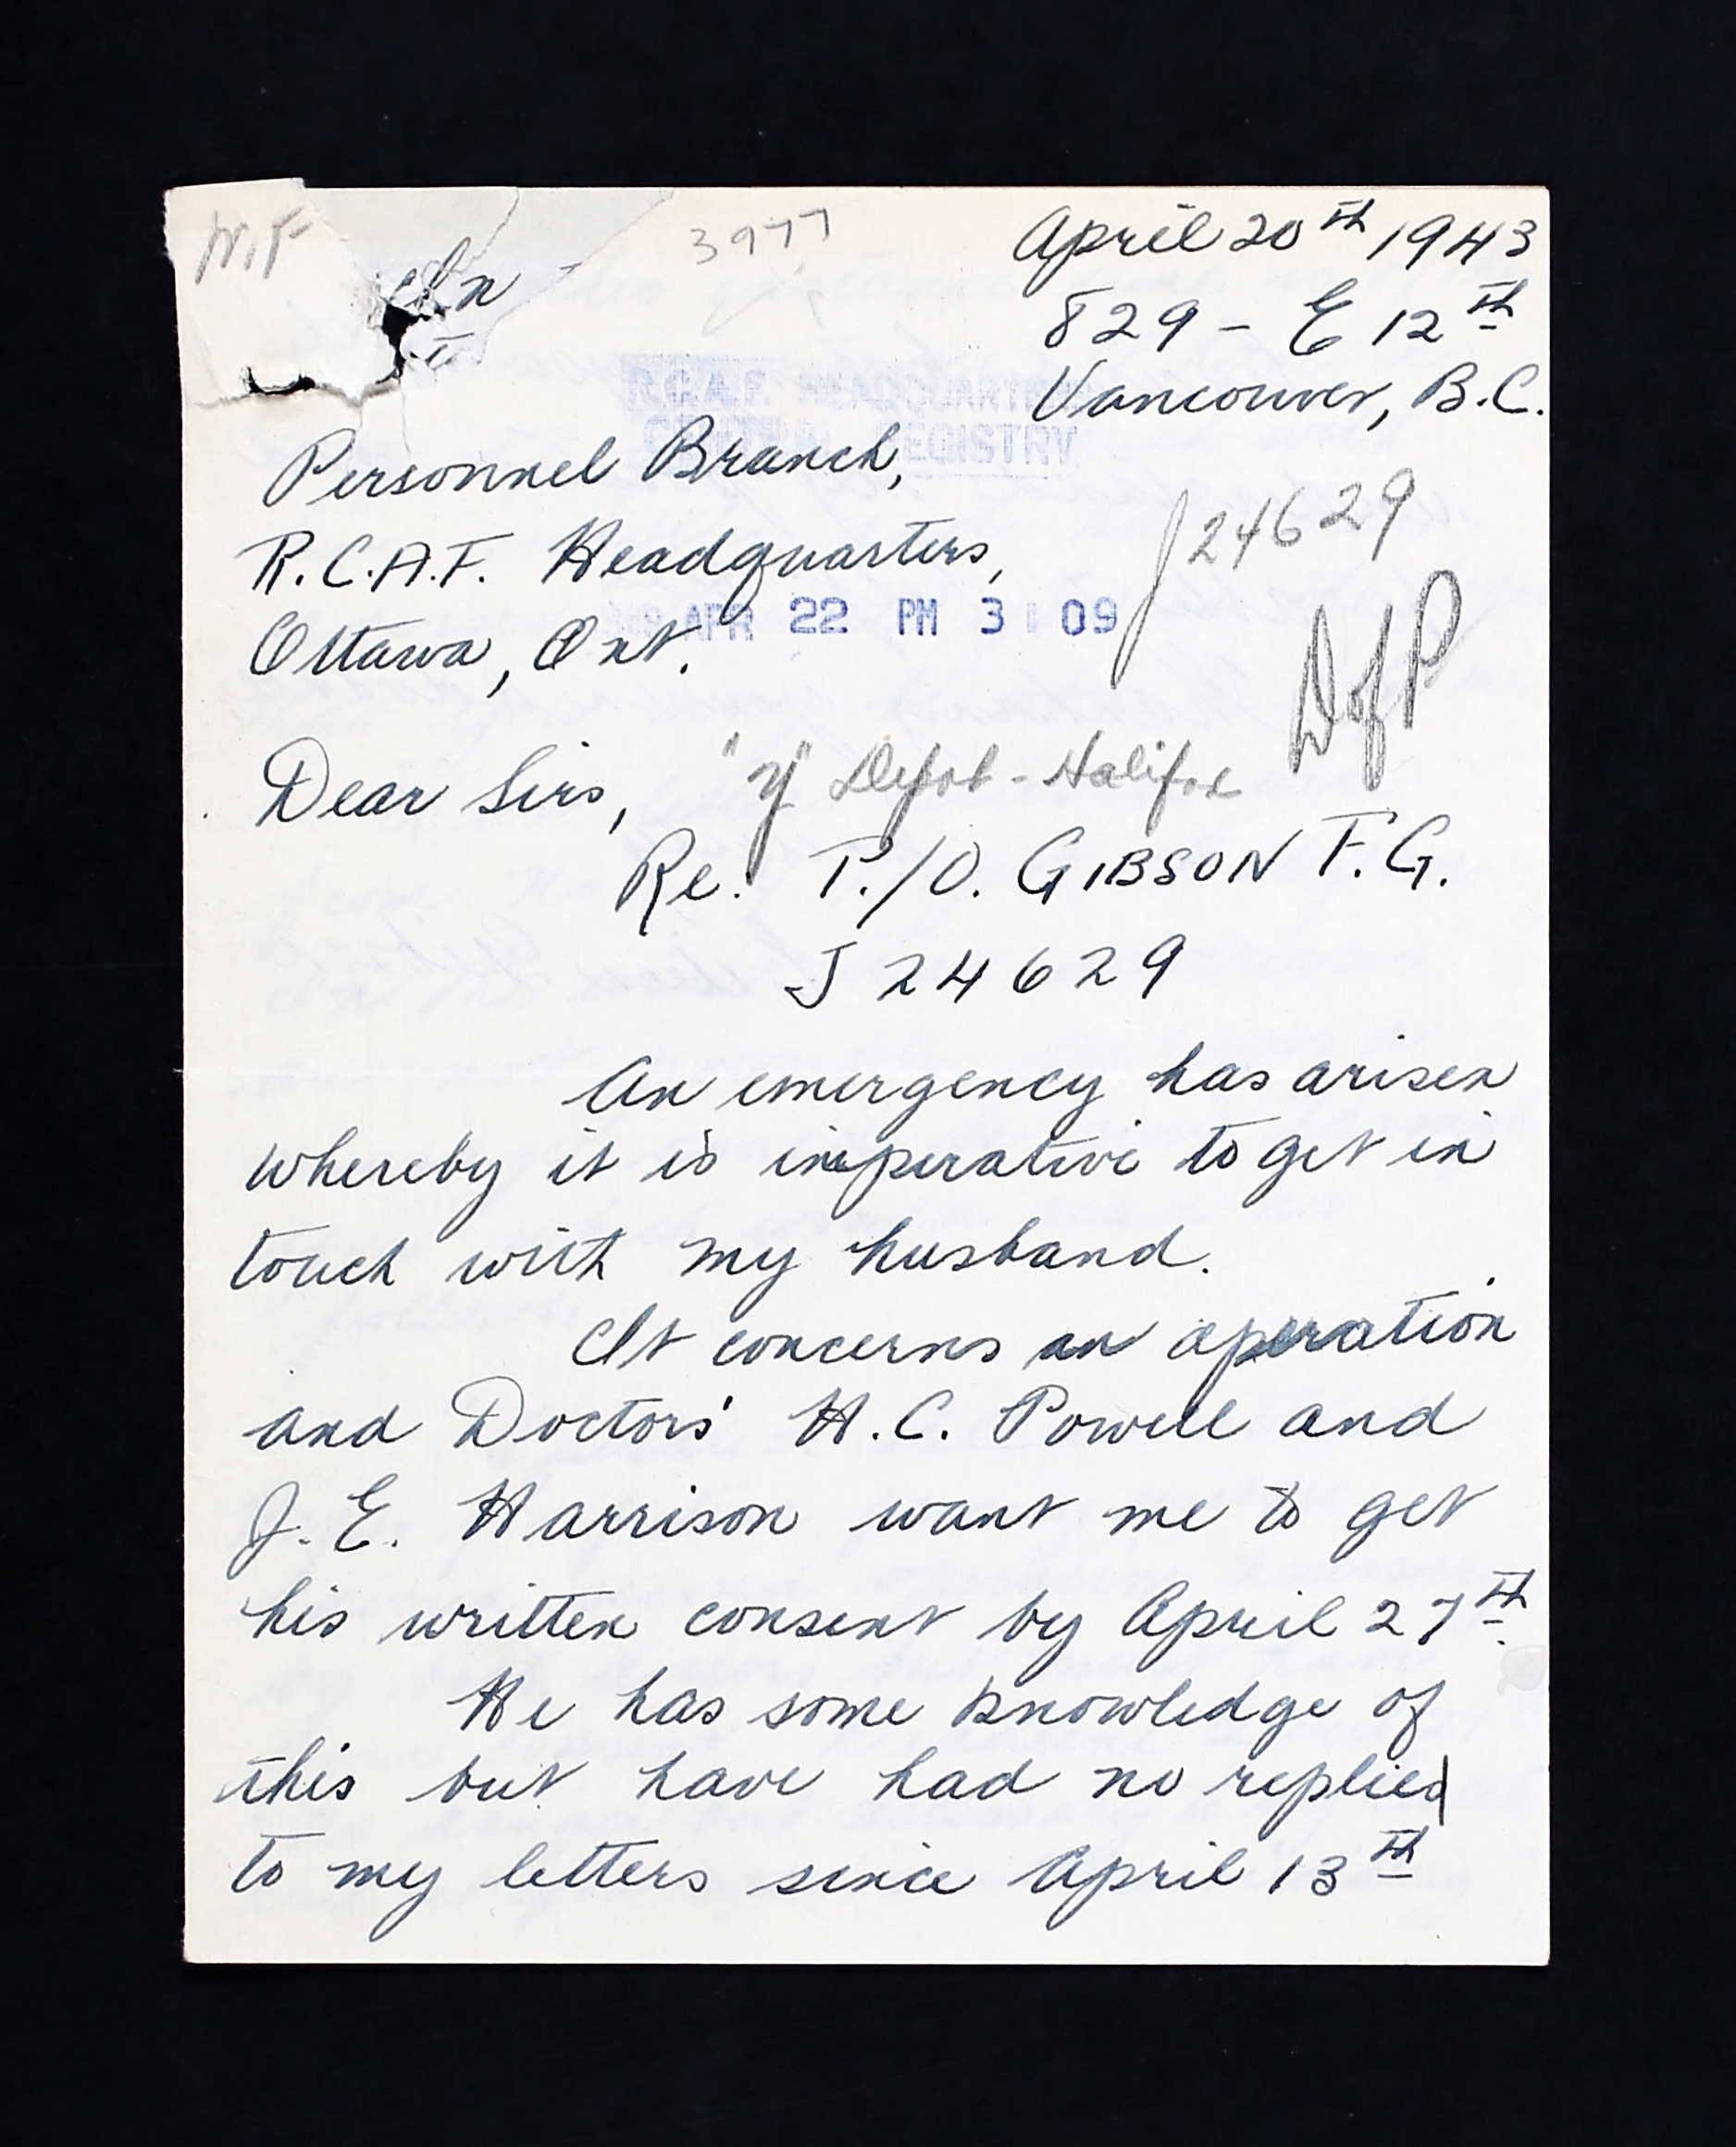 3977
April 20th 1943
829 - E 12th
Vancouver, B.C.
R.C.A.F. HEADQUARTERS
CENTRAL REGISTRY
Personnel Branch,
R.C.A.F. Headquarters,
Ottawa, Ont.
J24629
APR 22 PM 3 09
D of P
Dear Sirs,
"Y" Depot - Halifax
Re. P./O. GIBSON F.G.
J 24629
An emergency has arisen
whereby it is imperative to get in
touch with my husband.
It concerns an operation
and Doctors' H.C. Powell and
J. E. Harrison want me to get
his written consent by April 27th.
He has some knowledge of
this but have had no replies
to my letters since April 13th